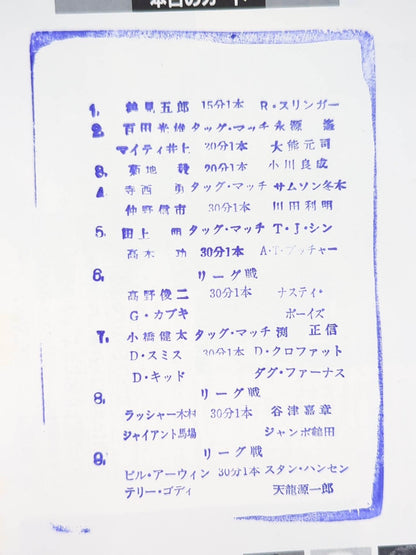 本日のカード
1. 鶴見五郎 15分1本 R・スリンガー
2. 百田光雄 タッグ・マッチ 永源 遙
マイティ井上 20分1本 大熊元司
3. 菊地 毅 20分1本 小川良成
4 寺西 勇 タッグ・マッチ サムソン冬木
仲野信市 30分1本 川田利明
5. 田上 明 タッグ・マッチ T・J・シン
高木 功 30分1本 A・T・ブッチャー
6. リーグ戦
高野俊二 30分1本 ナスティ・
G・カブキ ボーイズ
7. 小橋健太 タッグ・マッチ 渕 正信
D・スミス 30分1本 D・クロファット
D・キッド ダグ・ファーナス
8. リーグ戦
ラッシャー木村 30分1本 谷津嘉章
ジャイアント馬場 ジャンボ鶴田
9. リーグ戦
ビル・アーウィン 30分1本 スタン・ハンセン
テリー・ゴディ 天龍源一郎